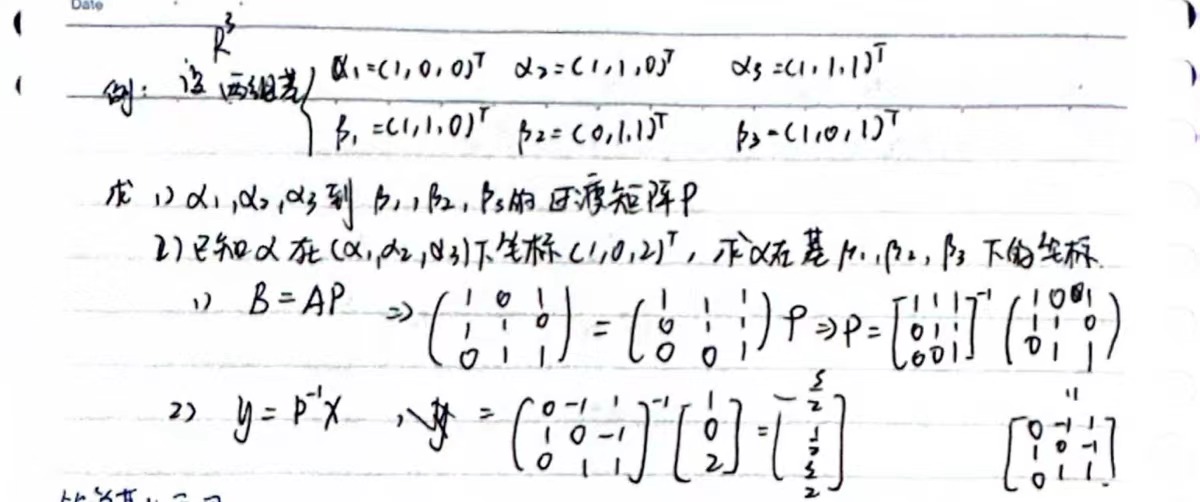 Date
R³
例: 设两组基 { α₁=(1,0,0)ᵀ α₂=(1,1,0)ᵀ α₃=(1,1,1)ᵀ
β₁=(1,1,0)ᵀ β₂=(0,1,1)ᵀ β₃=(1,0,1)ᵀ
求 1) α₁,α₂,α₃到 β₁,β₂,β₃的过渡矩阵P
2)已知α在(α₁,α₂,α₃)下坐标(1,0,2)ᵀ, 求α在基β₁,β₂,β₃下的坐标.
1) B=AP ⇒ (1 0 1; 1 1 0; 0 1 1) = (1 1 1; 0 1 1; 0 0 1) P ⇒ P = [1 1 1; 0 1 1; 0 0 1]⁻¹ (1 0 1; 1 1 0; 0 1 1)
"
2) y=P⁻¹X , y = (0 -1 1; 1 0 -1; 0 1 1)⁻¹ [1; 0; 2] = [-5/2; 1/2; 5/2] [0 -1 1; 1 0 -1; 0 1 1]